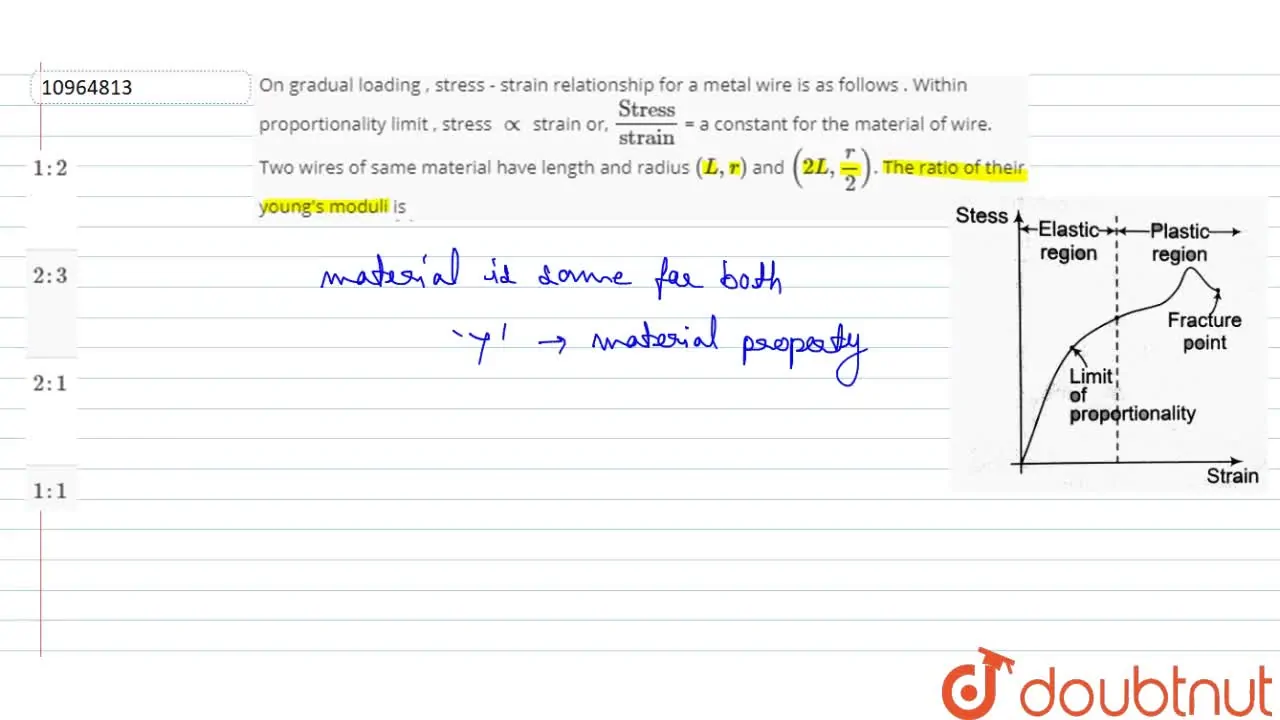 10964813
On gradual loading , stress - strain relationship for a metal wire is as follows . Within
proportionality limit , stress ∝ strain or, Stress/strain = a constant for the material of wire.
Two wires of same material have length and radius (L, r) and (2L, r/2). The ratio of their
young's moduli is
1:2
2:3
2:1
1:1
material is same for both
'Y' → material property
Stess
Elastic
region
Plastic
region
Fracture
point
Limit
of
proportionality
Strain
doubtnut